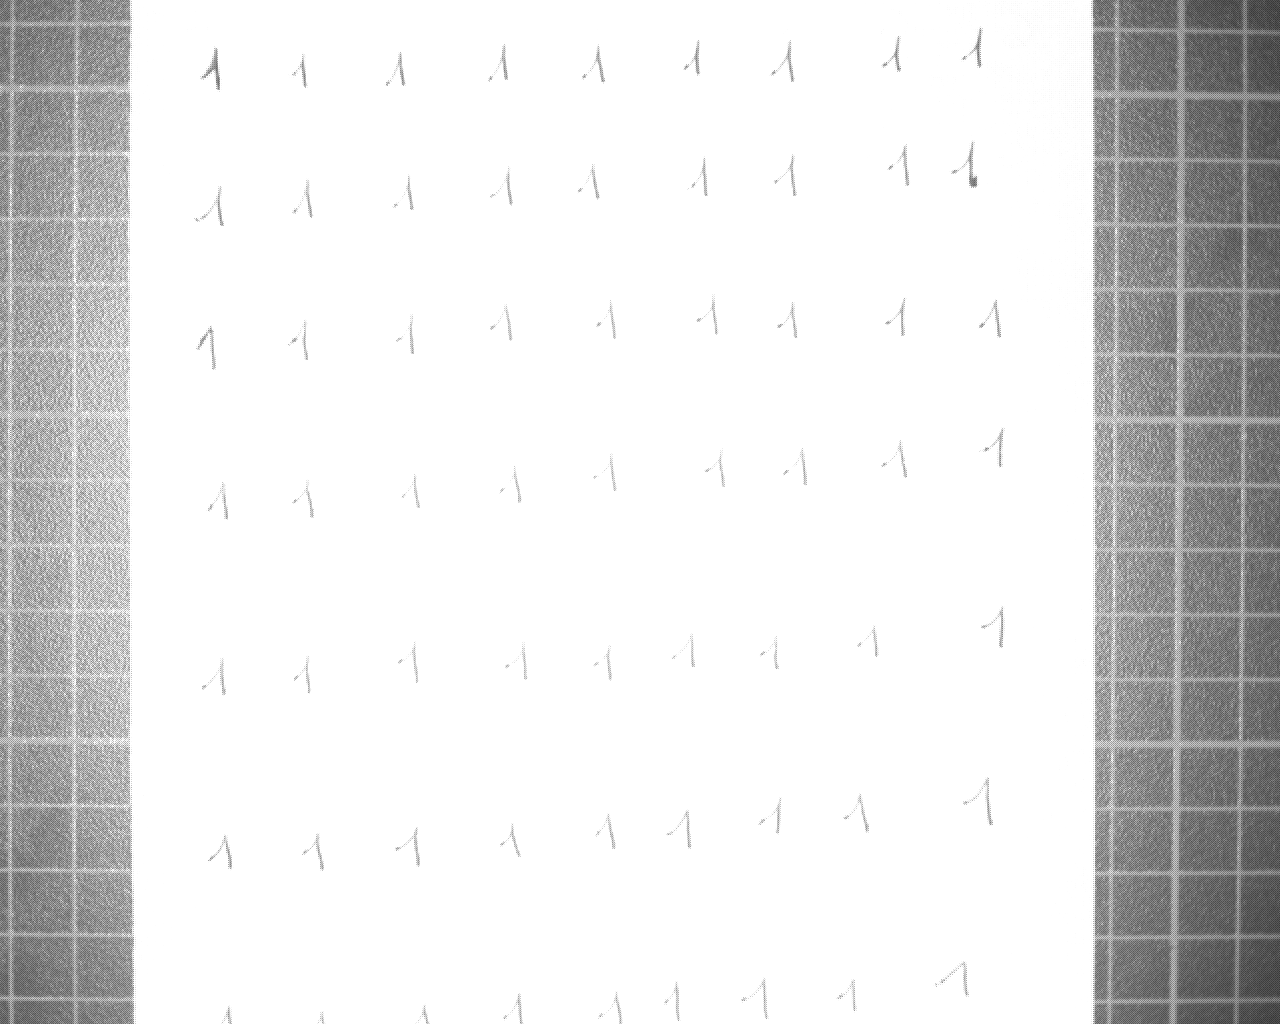 1 1 1 1 1 1 1 1 1
1 1 1 1 1 1 1 1 1
1 1 1 1 1 1 1 1 1
1 1 1 1 1 1 1 1 1
1 1 1 1 1 1 1 1 1
1 1 1 1 1 1 1 1 1
1 1 1 1 1 1 1 1 1